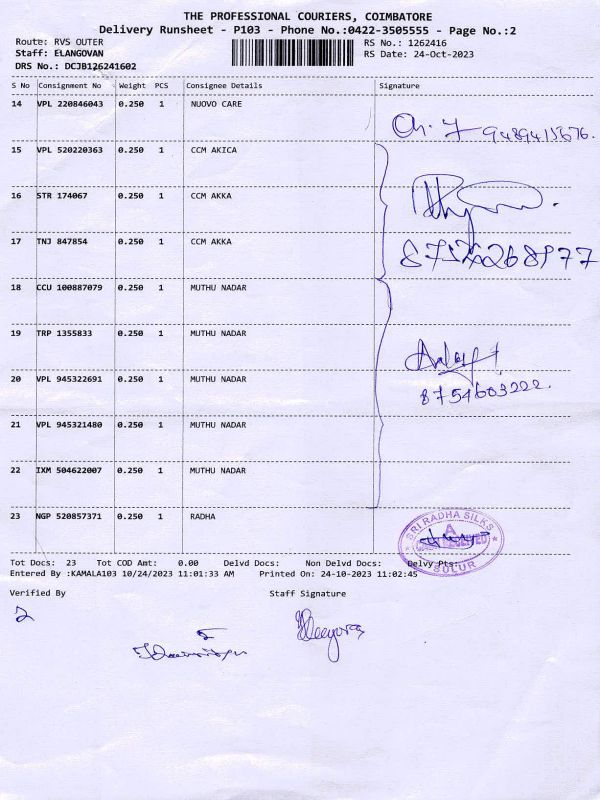 THE PROFESSIONAL COURIERS, COIMBATORE
Delivery Runsheet - P103 - Phone No.:0422-3505555 - Page No.:2
Route: RVS OUTER RS No.: 1262416
Staff: ELANGOVAN RS Date: 24-Oct-2023
DRS No.: DCJB126241602
S No Consignment No Weight PCS Consignee Details Signature
14 VPL 220846043 0.250 1 NUOVO CARE
9489415676.
15 VPL 520220363 0.250 1 CCM AKICA
16 STR 174067 0.250 1 CCM AKKA
17 TNJ 847854 0.250 1 CCM AKKA
18 CCU 100887079 0.250 1 MUTHU NADAR
19 TRP 1355833 0.250 1 MUTHU NADAR
20 VPL 945322691 0.250 1 MUTHU NADAR
8754603222.
21 VPL 945321480 0.250 1 MUTHU NADAR
22 IXM 504622007 0.250 1 MUTHU NADAR
23 NGP 520857371 0.250 1 RADHA
SRI RADHA SILKS
SULUR
Tot Docs: 23 Tot COD Amt: 0.00 Delvd Docs: Non Delvd Docs: Delvy Pts:
Entered By :KAMALA103 10/24/2023 11:01:33 AM Printed On: 24-10-2023 11:02:45
Verified By Staff Signature